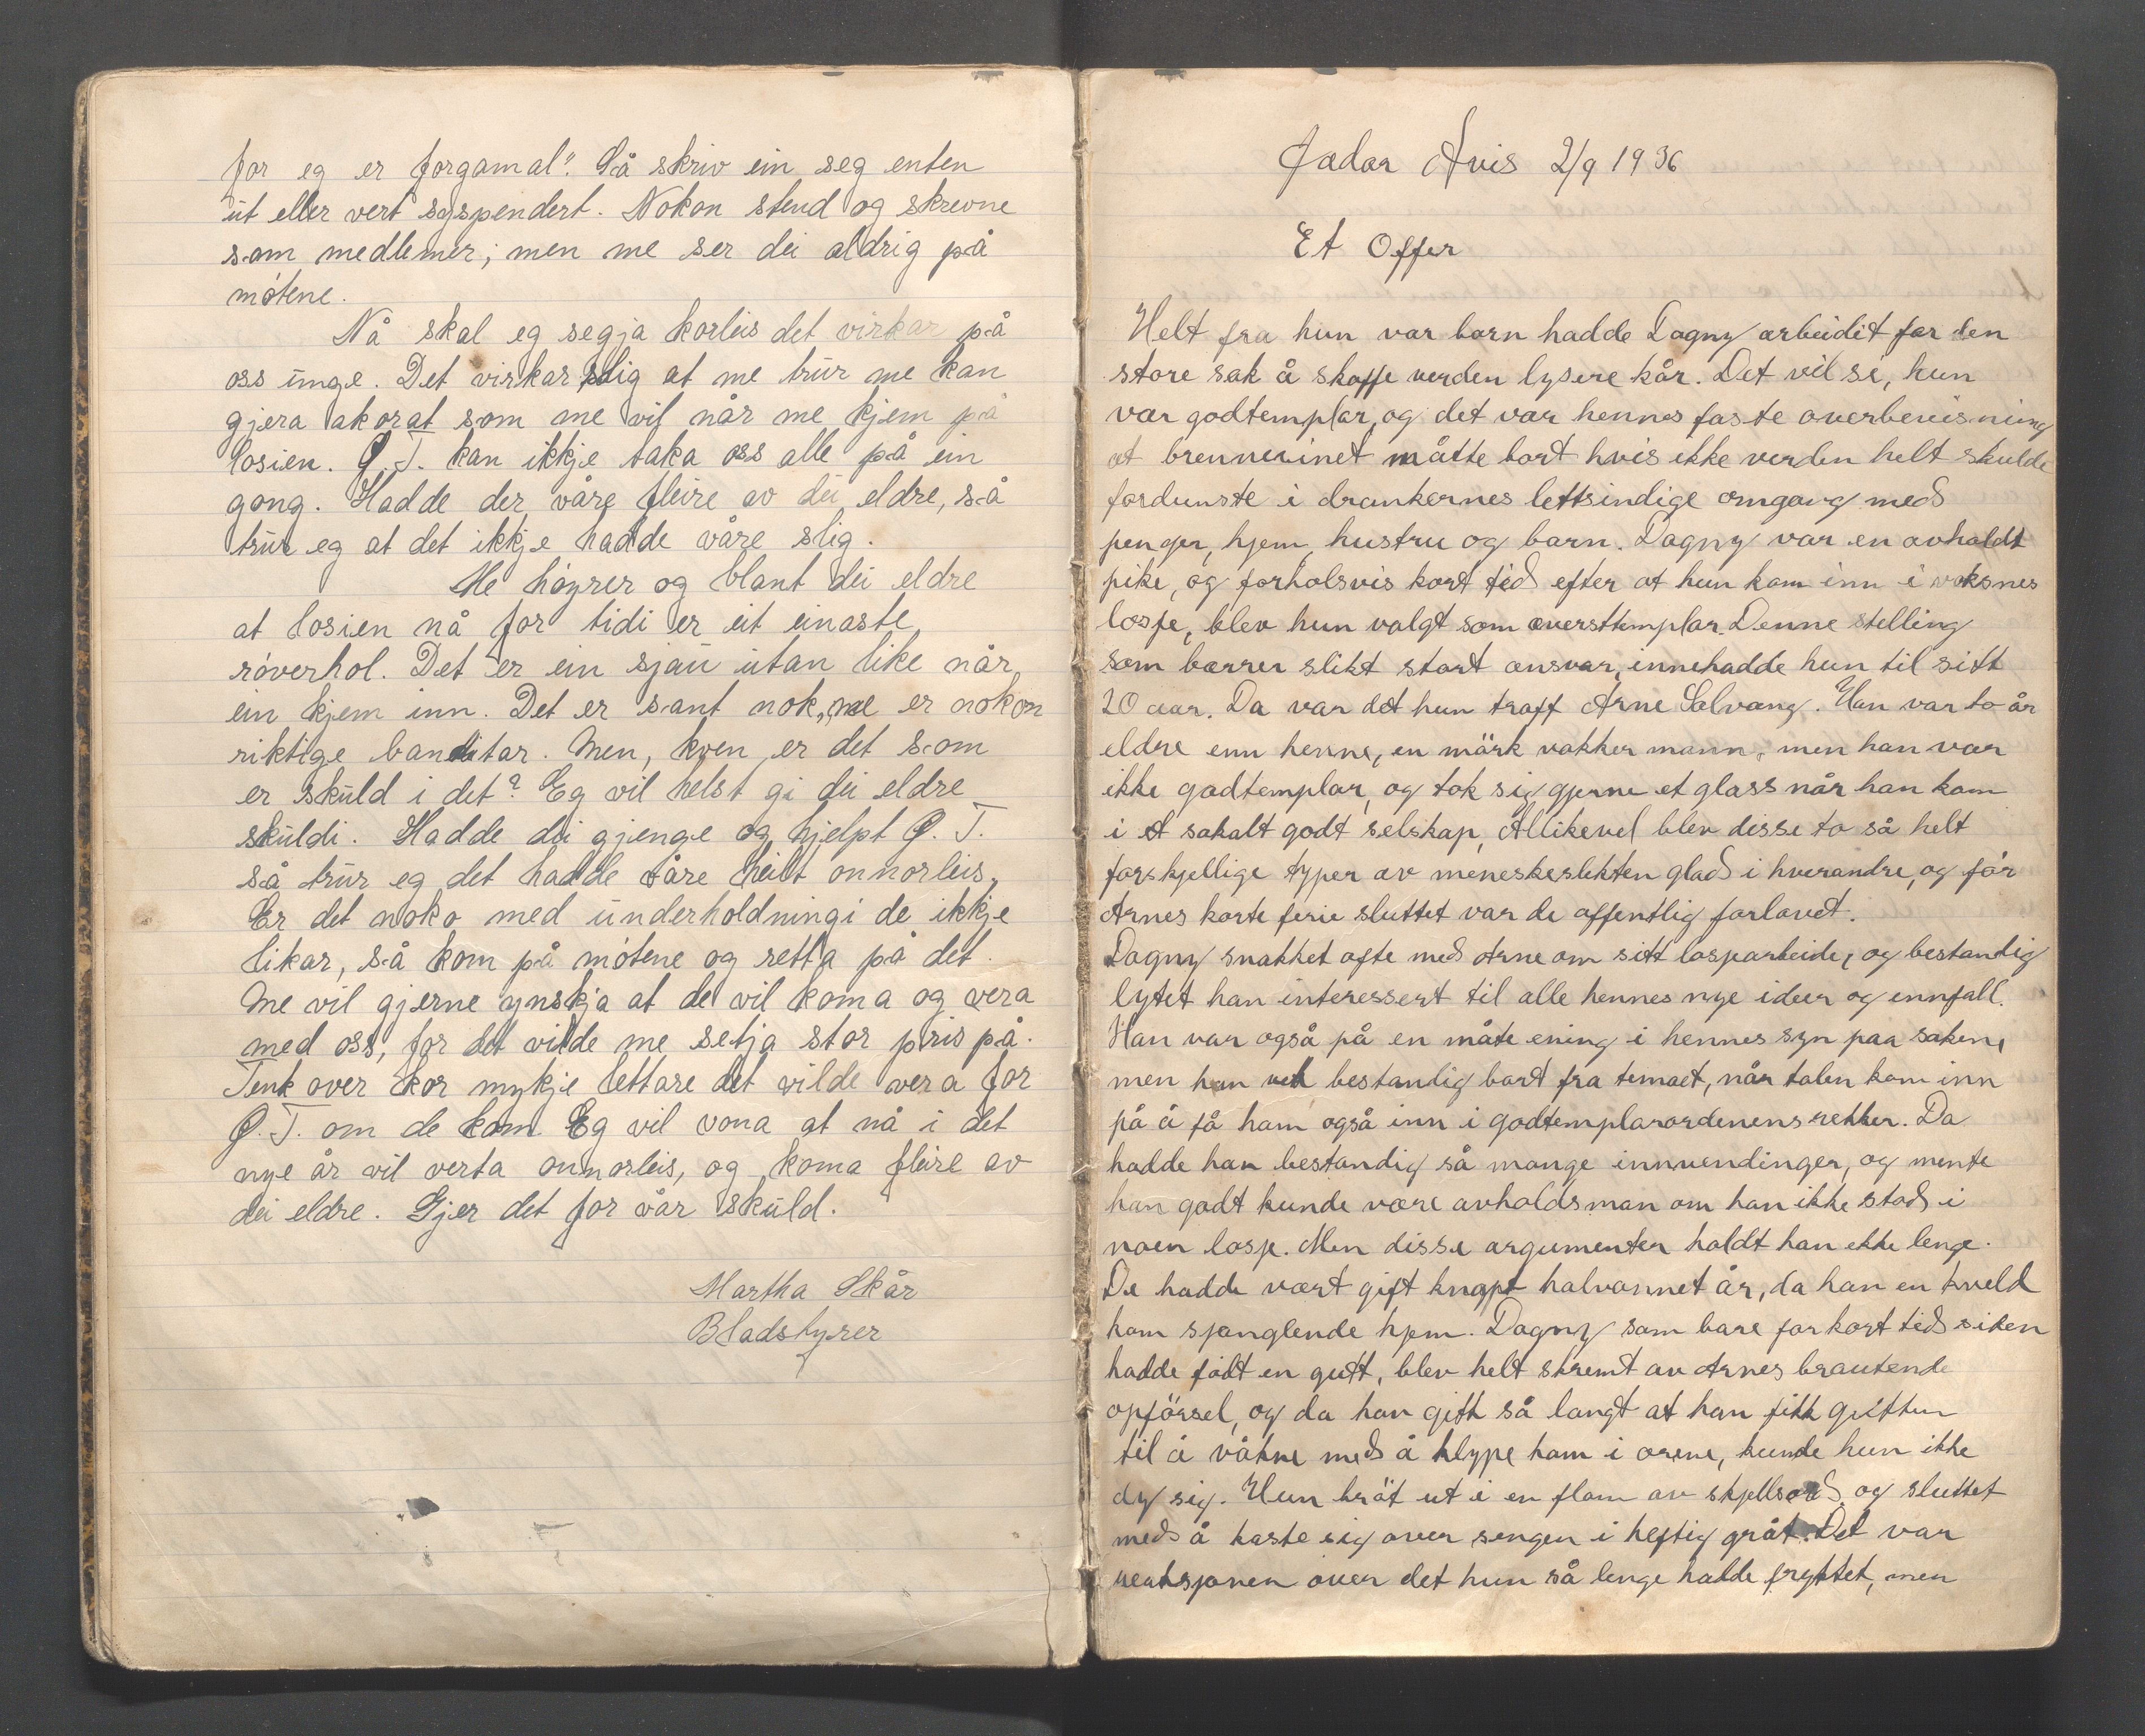 for eg er forgamal". Så skriv ein seg enten
ut eller vert syspendert. Nokon stend og skrevne
som medlemer; men me ser dei aldrig på
møtene.
Nå skal eg segja korleis det virkar på
oss unge. Det virkar slig at me trur me kan
gjera akorat som me vil når me kjem på
losien. Ø.T. kan ikkje taka oss alle på ein
gong. Hadde der våre fleire av dei eldre, så
trur eg at det ikkje hadde våre slig.
Me høyrer og blant dei eldre
at losien nå for tidi er eit einaste
røverhol. Det er ein sjau utan like når
ein kjem inn. Det er sant nok, me er nokon
riktige banditar. Men, kven er det som
er skuld i det? Eg vil helst gi dei eldre
skuldi. Hadde dei gjenge og hjelpt Ø.T.
så trur eg det hadde våre heilt onnorleis.
Er det noko med underholdningi de ikkje
likar, så kom på møtene og retta på det.
Me vil gjerne ynskja at de vil koma og vera
med oss, for det vilde me setja stor pris på.
Tenk over kor mykje lettare det vilde vera for
Ø.T. om de kom. Eg vil vona at nå i det
nye år vil verta onnorleis, og koma fleire av
dei eldre. Gjer det for vår skuld.
Martha Skår
Bladstyrer
Jadar Avis 2/9 1936
Et Offer
Helt fra hun var barn hadde Dagny arbeidet for den
store sak å skaffe verden lysere kår. Det vil si, hun
var godtemplar, og det var hennes faste overbevisning
at brennevinet måtte bort hvis ikke verden helt skulde
fordunste i drankernes lettsindige omgang med
penger, hjem, hustru og barn. Dagny var en avholdt
pike, og forholsvis kort tid efter at hun kom inn i voksnes
losje, blev hun valgt som oversttemplar. Denne stelling
som bærer slikt stort ansvar, innehadde hun til sitt
20 aar. Da var det hun traff Arne Solvang. Han var to år
eldre enn henne, en mörk vakker mann, men han var
ikke godtemplar, og tok sig gjerne et glass når han kom
i et sakalt godt selskap, Allikevel blev disse to så helt
forskjellige typer av meneskeslekten glad i hverandre, og för
Arnes korte ferie sluttet var de offentlig forlovet.
Dagny snakket ofte med Arne om sitt losjearbeide, og bestandig
lytet han interessert til alle hennes nye ideer og innfall.
Han var også på en måte ening i hennes syn paa saken,
men han vek bestandig bort fra temaet, når talen kom inn
på å få ham også inn i godtemplarordenens rekker. Da
hadde han bestandig så mange innvendinger, og mente
han godt kunde være avholdsman om han ikke stod i
noen losje. Men disse argumenter holdt han ikke lenge.
De hadde vært gift knapt halvannet år, da han en kveld
kom sjanglende hjem. Dagny som bare for kort tid siken
hadde födt en gutt, blev helt skremt av Arnes brautende
opförsel, og da han gikk så langt at han fikk gutten
til å våkne med å klype ham i ørene, kunde hun ikke
dy sig. Hun bröt ut i en flom av skjellsord og sluttet
med å kaste sig over sengen i heftig gråt. Det var
reaksjonen over det hun så lenge hadde fryktet, men